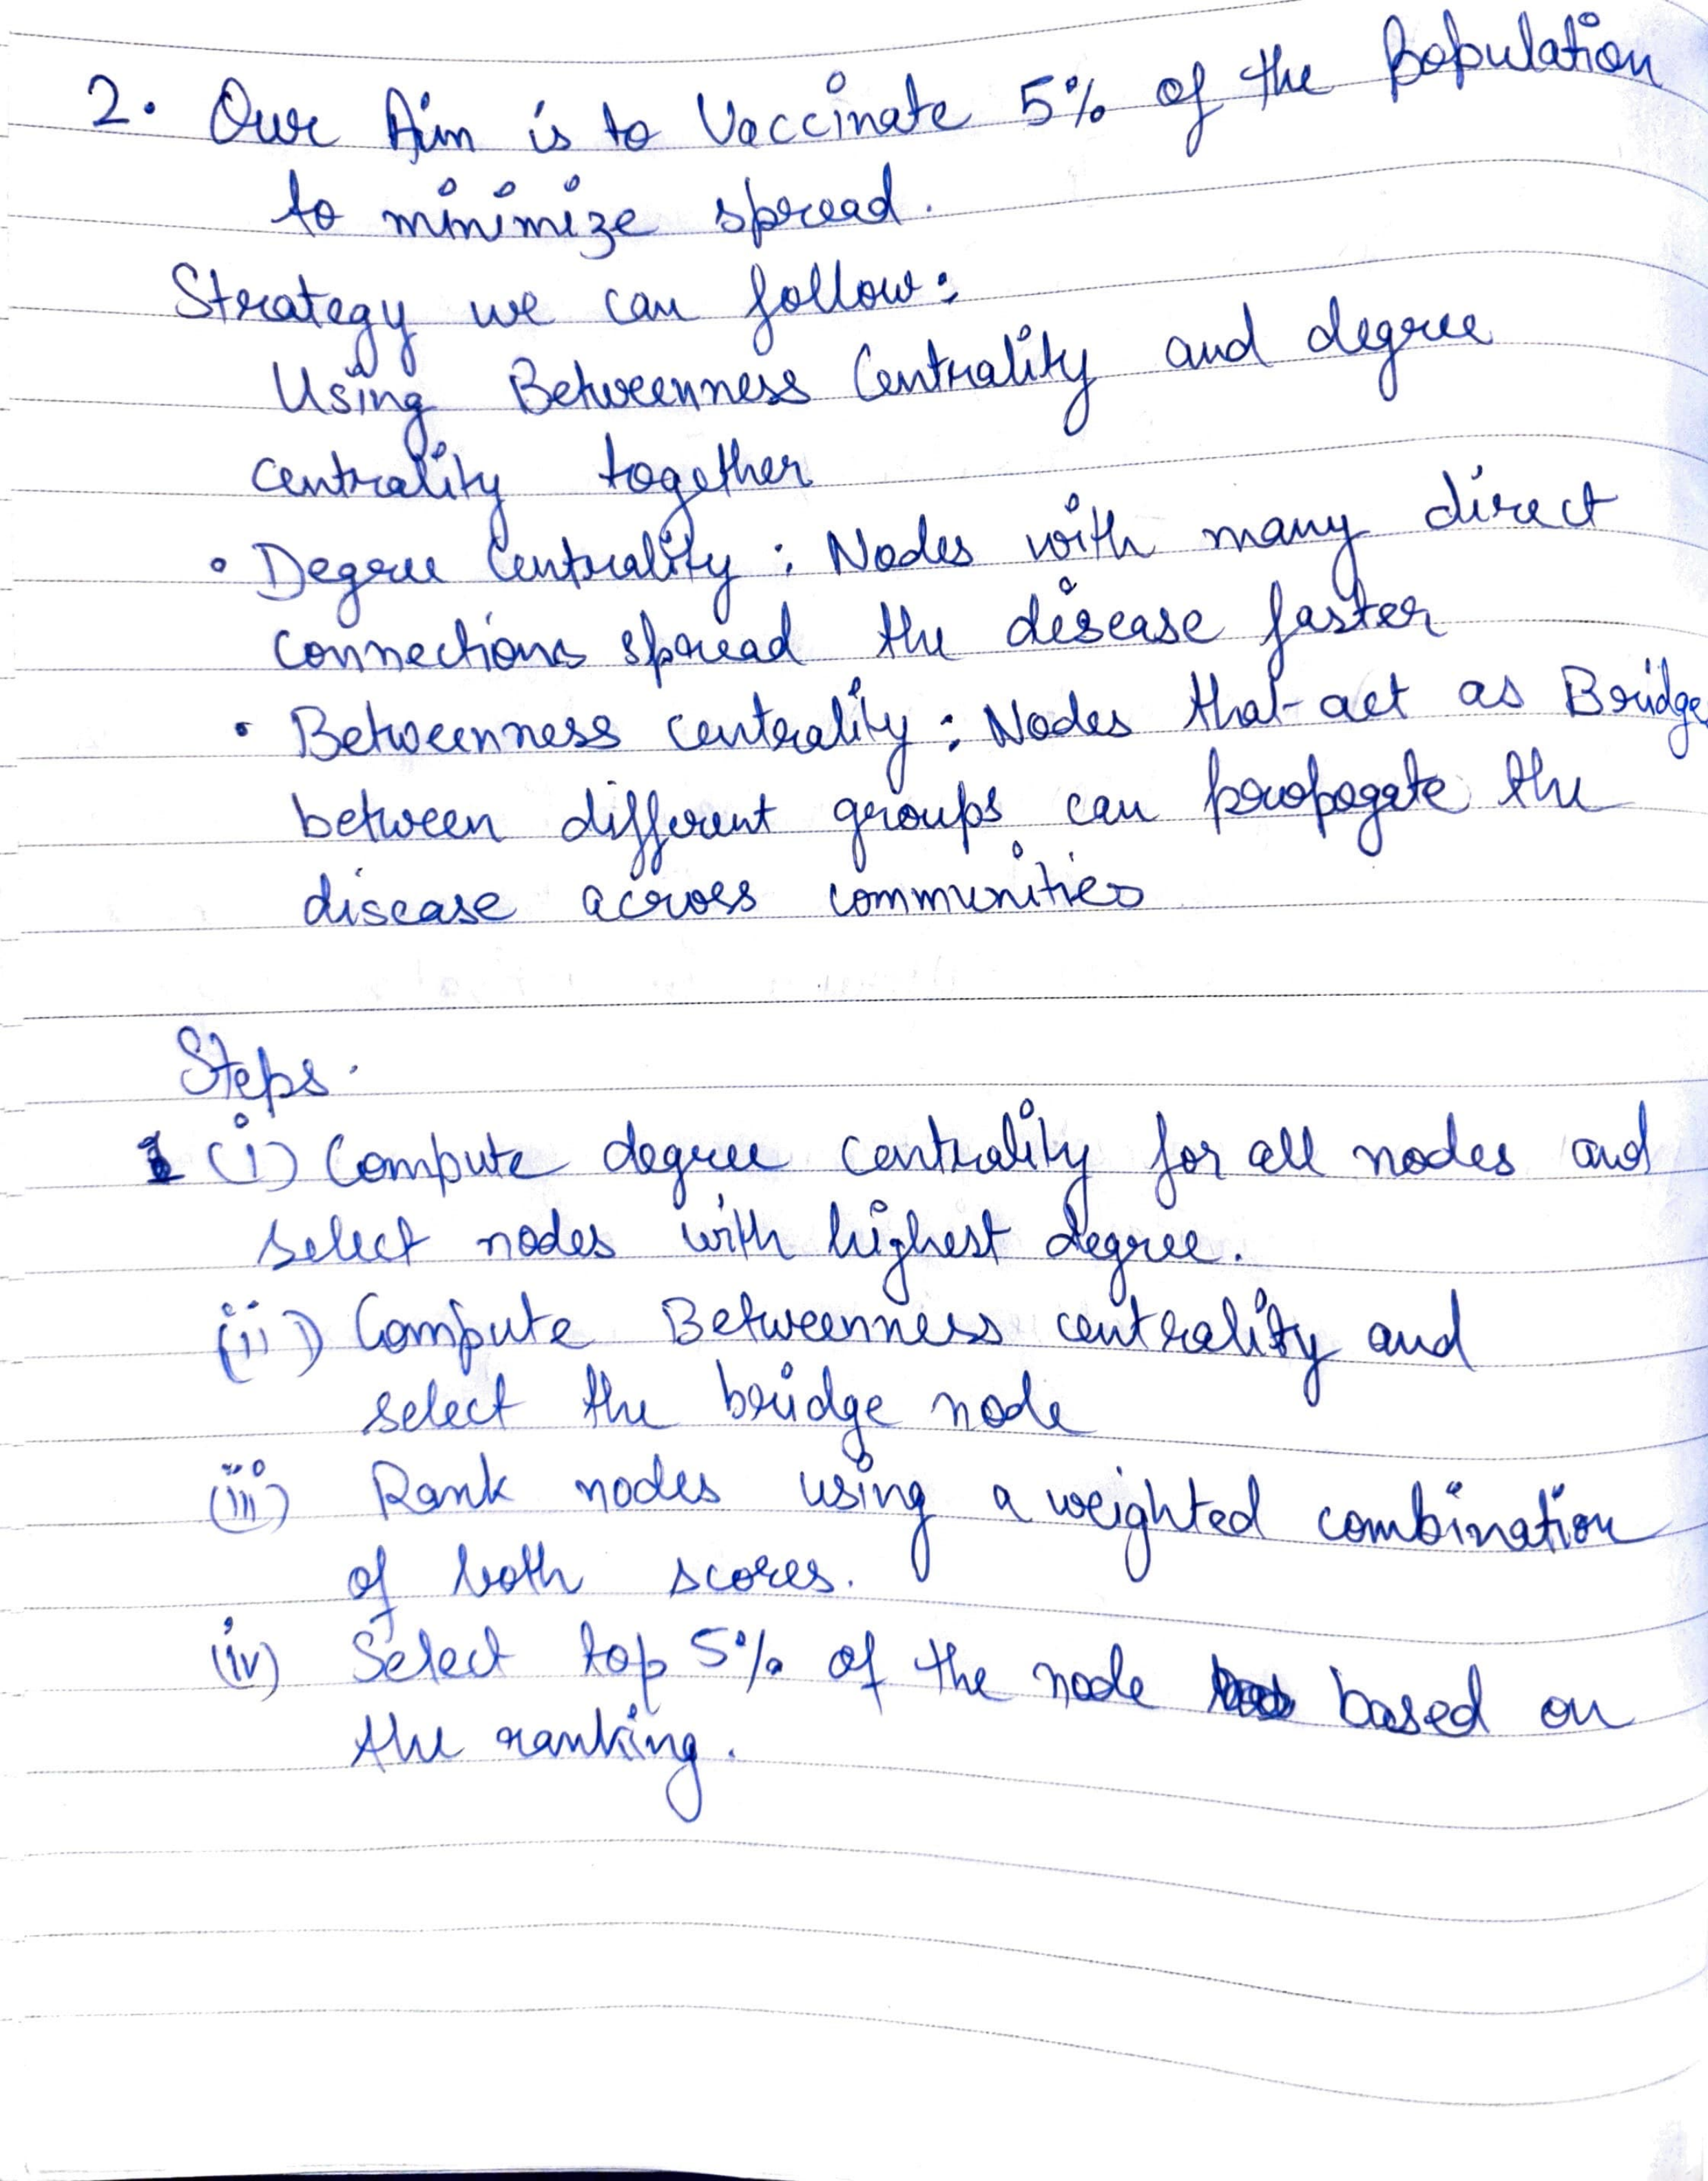 2. Our Aim is to Vaccinate 5% of the Population
to minimize spread.
Strategy we can follow:
Using Betweenness Centrality and degree
centrality together
• Degree Centrality : Nodes with many direct
connections spread the disease faster
• Betweenness centrality : Nodes that act as Bridge
between different groups can propogate the
disease across communities
Steps.
(i) Compute degree centrality for all nodes and
select nodes with highest degree.
(ii) Compute Betweenness centrality and
select the bridge node
(iii) Rank nodes using a weighted combination
of both scores.
(iv) Select top 5% of the node based on
the ranking.